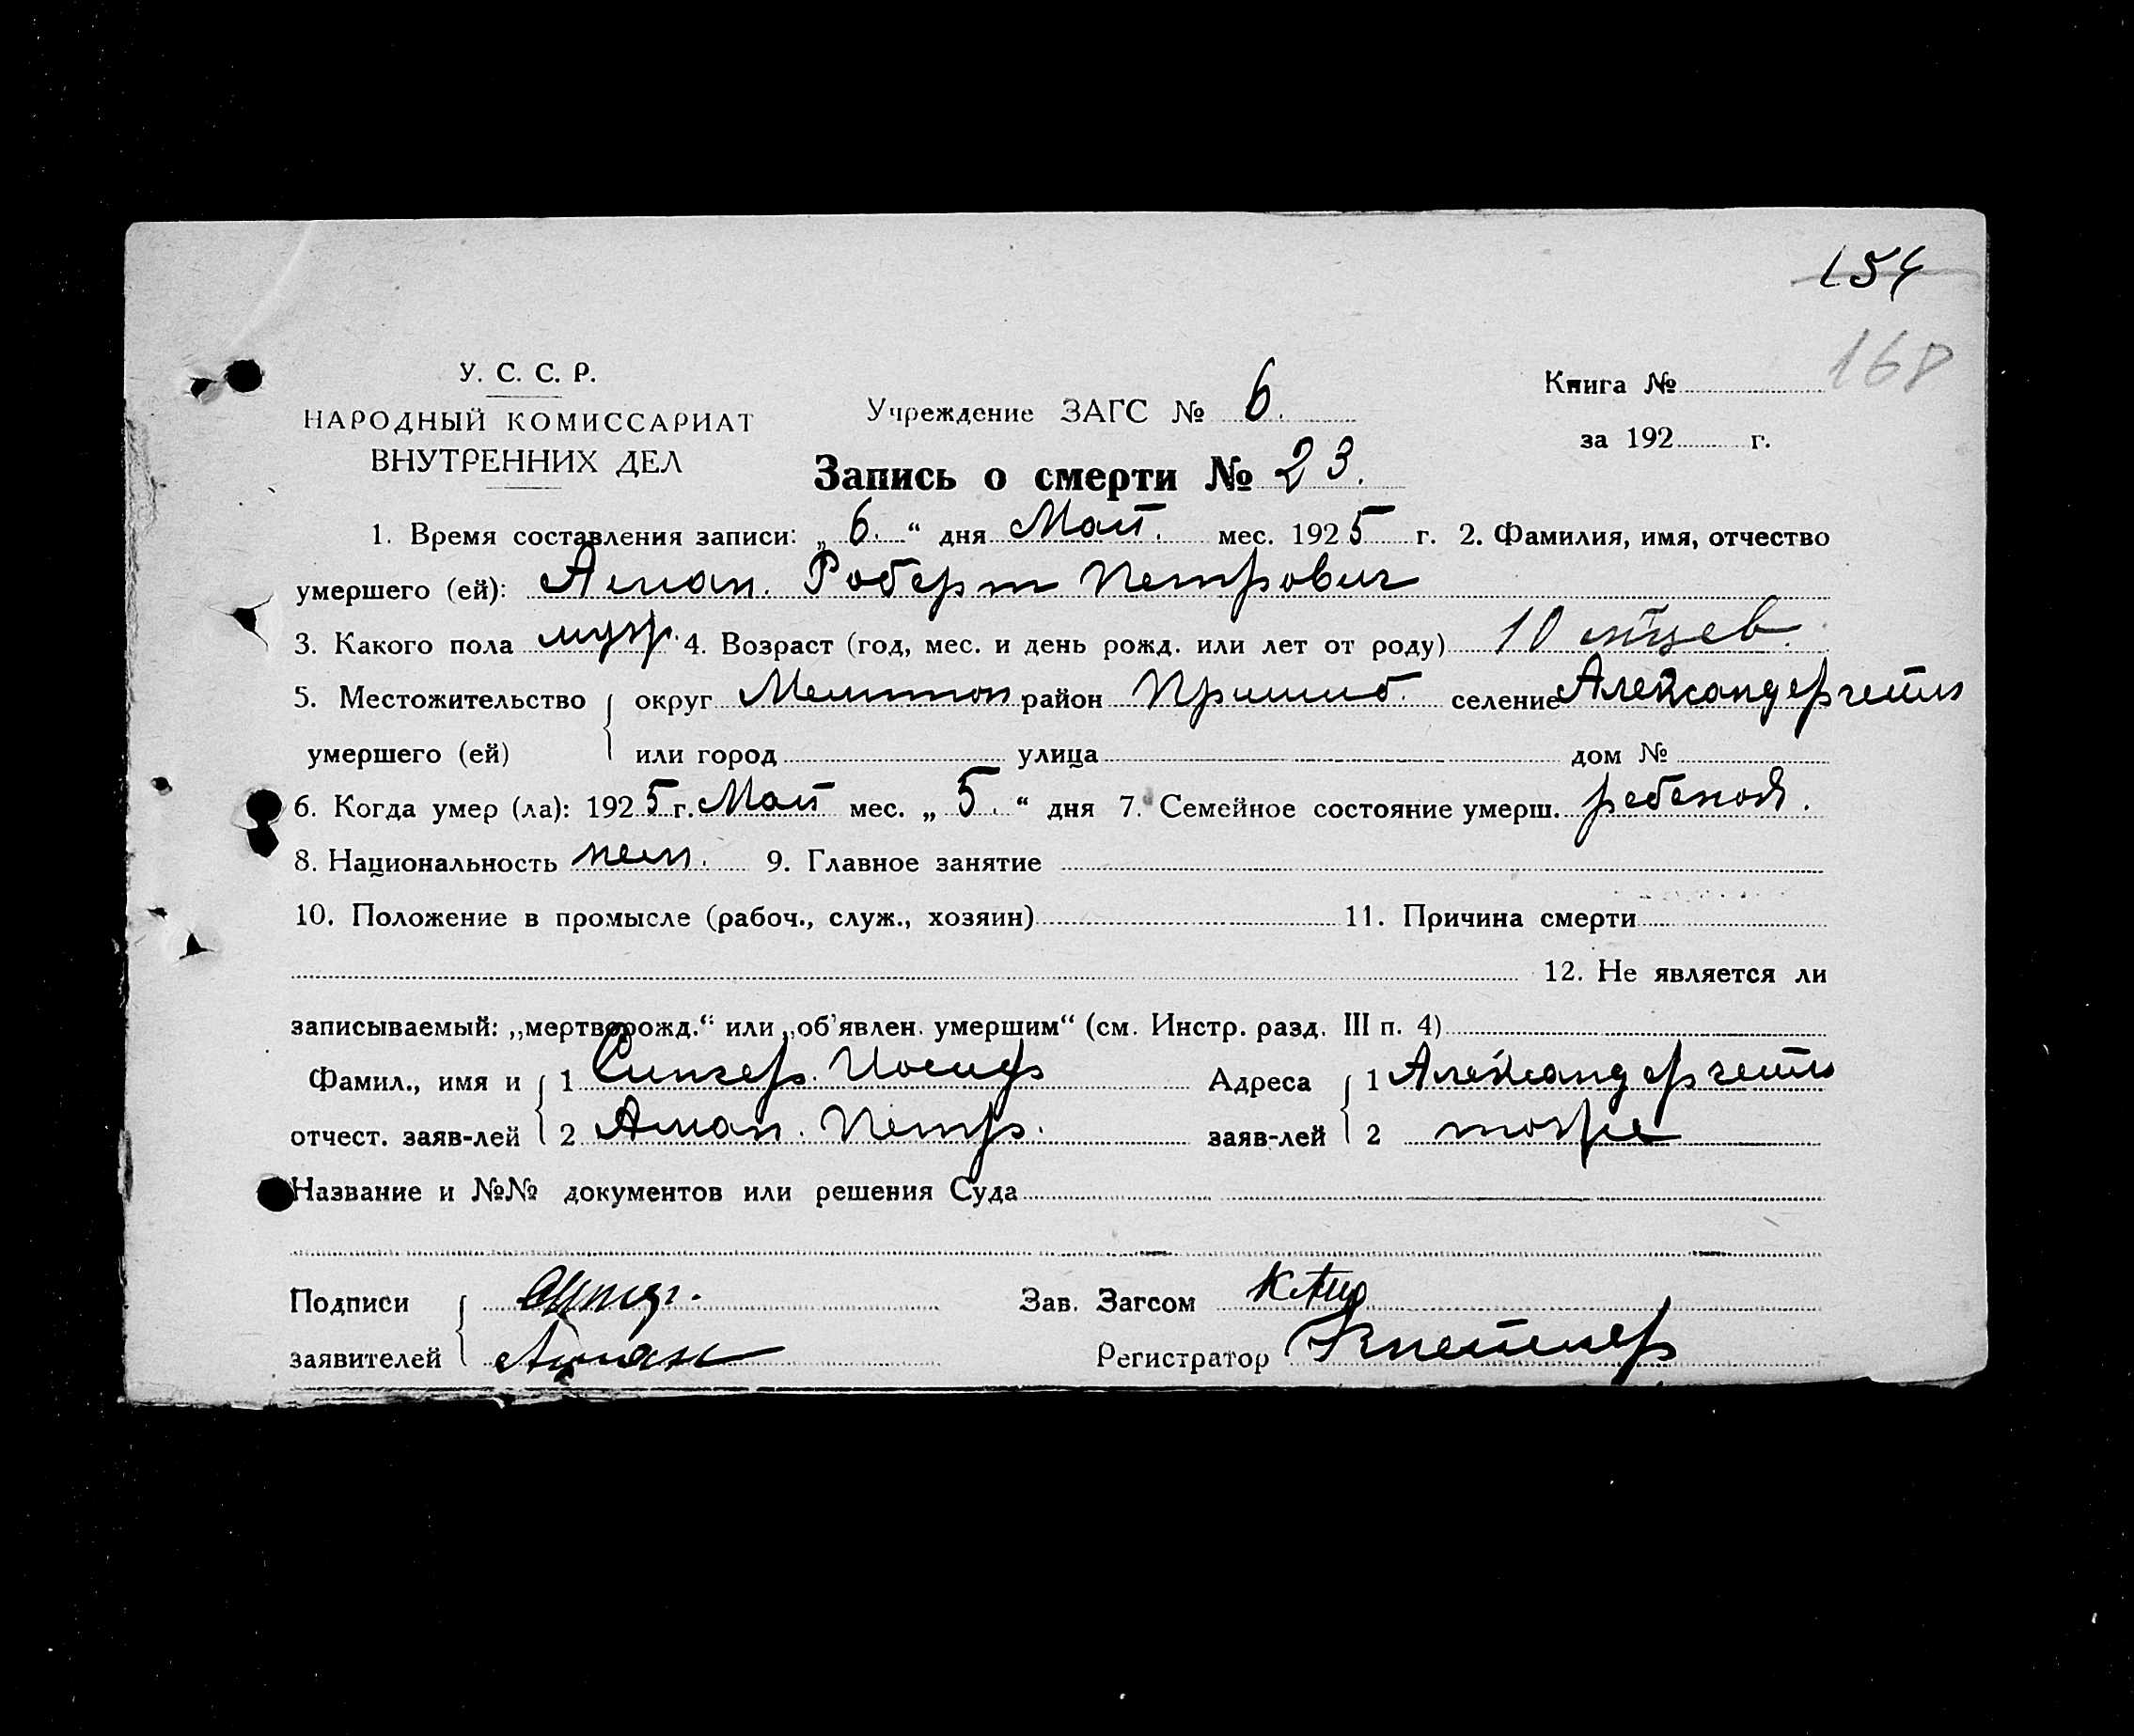 154
168
У. С. С. Р.
НАРОДНЫЙ КОМИССАРИАТ
ВНУТРЕННИХ ДЕЛ
Учреждение ЗАГС № 6.
Книга №
за 192 г.
Запись о смерти № 23.
1. Время составления записи: „ 6. “ дня Май. мес. 1925 г. 2. Фамилия, имя, отчество
умершего (ей): Аман. Роберт Петрович
3. Какого пола муж. 4. Возраст (год, мес. и день рожд. или лет от роду) 10 м-цев.
5. Местожительство округ Мелитоп район Пришиб. селение Александергейм
умершего (ей) или город улица дом №
6. Когда умер (ла): 1925 г. Май мес. „ 5. “ дня 7. Семейное состояние умерш. ребенок.
8. Национальность нем. 9. Главное занятие
10. Положение в промысле (рабоч., служ., хозяин) 11. Причина смерти
12. Не является ли
записываемый: „мертворожд.“ или „об'явлен. умершим“ (см. Инстр. разд. III п. 4)
Фамил., имя и 1 Сингер. Иосиф Адреса 1 Александергейм
отчест. заяв-лей 2 Аман. Петр. заяв-лей 2 тоже
Название и №№ документов или решения Суда
Подписи Зав. Загсом
заявителей Аман Регистратор